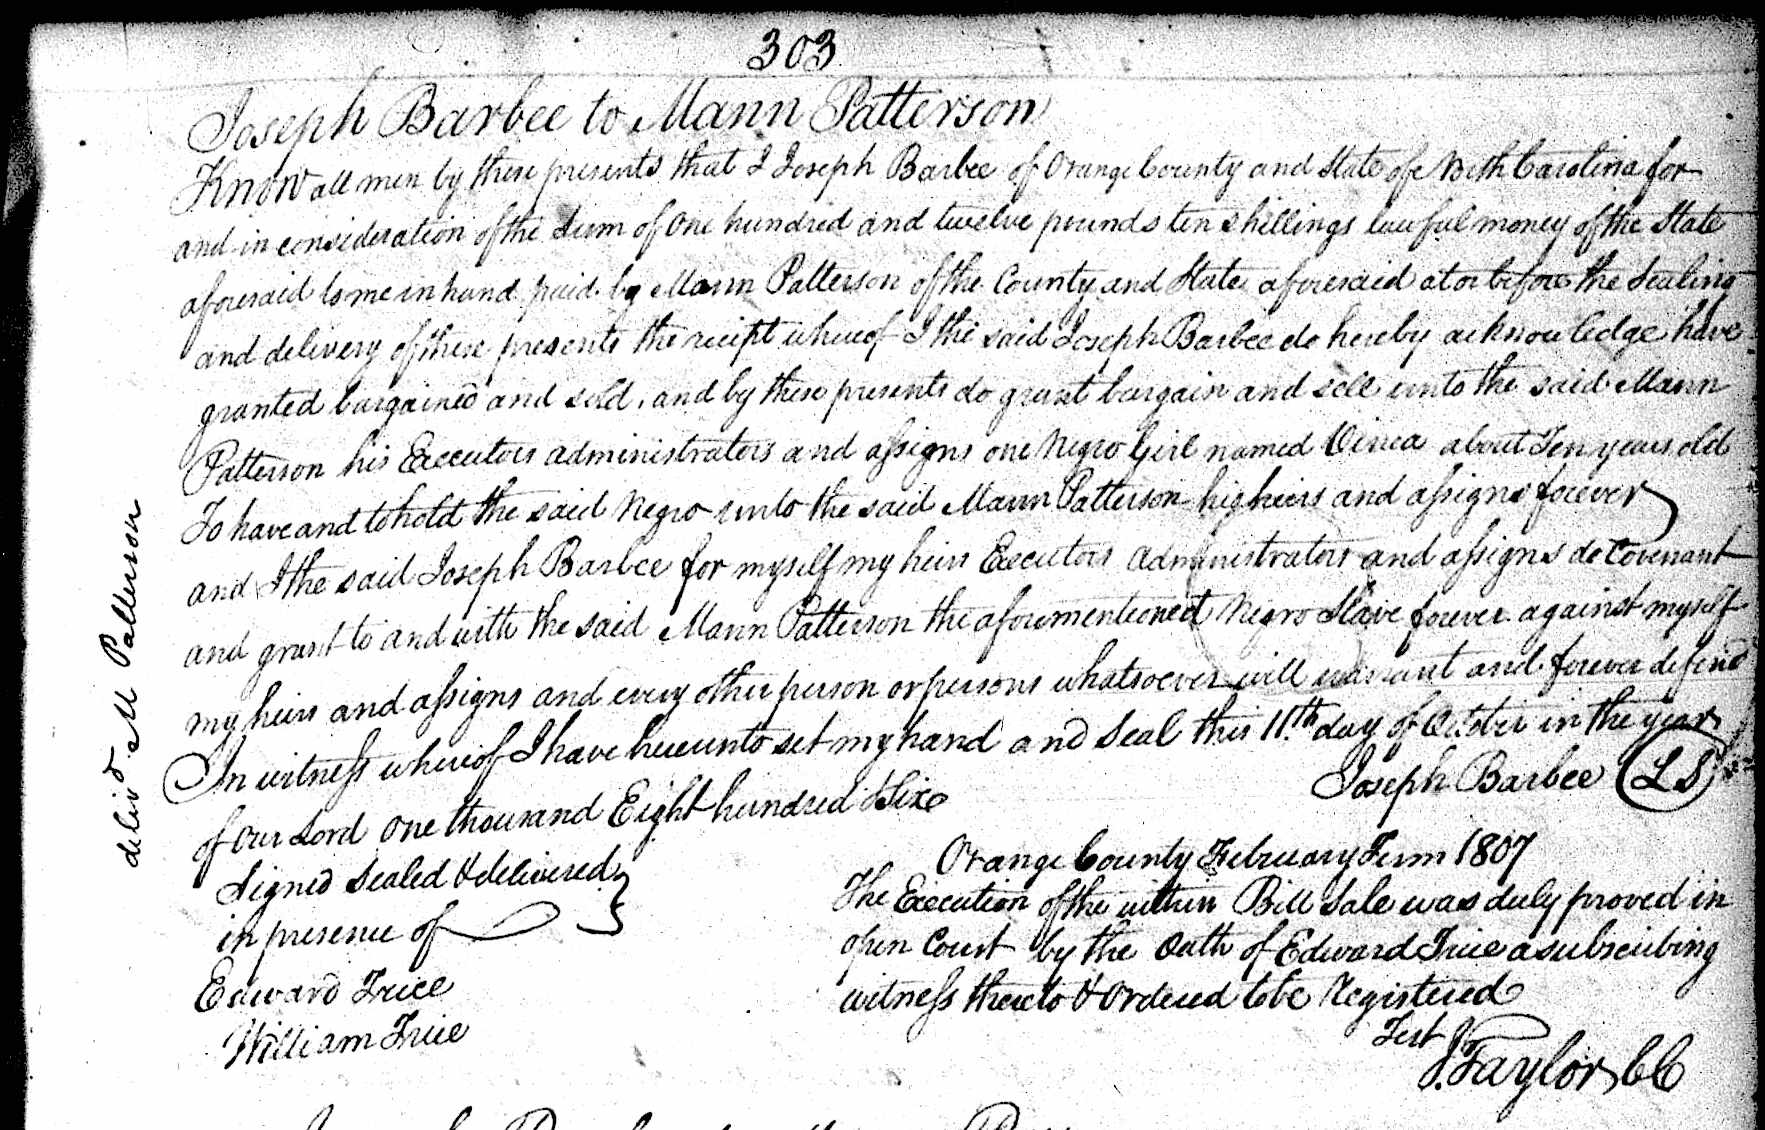 303
Joseph Barbee to Mann Patterson
Know all men by these presents that I Joseph Barbee of Orange County and State of North Carolina for
and in consideration of the Sum of one hundred and twelve pounds ten shillings lawful money of the State
aforesaid to me in hand paid by Mann Patterson of the County and State aforesaid at or before the Sealing
and delivery of these presents the reciept whereof I the said Joseph Barbee do hereby acknowledge have
granted bargained and sold, and by these presents do grant bargain and sell unto the said Mann
Patterson his Executors administrators and assigns one Negro Girl named about Ten years old
To have and to hold the said Negro unto the said Mann Patterson his heirs and assigns forever
and I the said Joseph Barbee for myself my heirs Executors administrators and assigns do Covenant
and grant to and with the said Mann Patterson the aforementioned Negro Slave forever against myself
my heirs and assigns and every other person or persons whatsoever will warrant and forever defend
In witness whereof I have hereunto set my hand and Seal this 11th day of October in the year
of our Lord one thousand Eight hundred & Six
Joseph Barbee (L S)
Signed Sealed & delivered
in presence of
Edward Trice
William Trice
Orange County February Term 1807
The Execution of the within Bill Sale was duly proved in
open Court by the Oath of Edward Trice a subscribing
witness thereto & Ordered to be Registered
Test
J. Taylor CC
delivd M Patterson